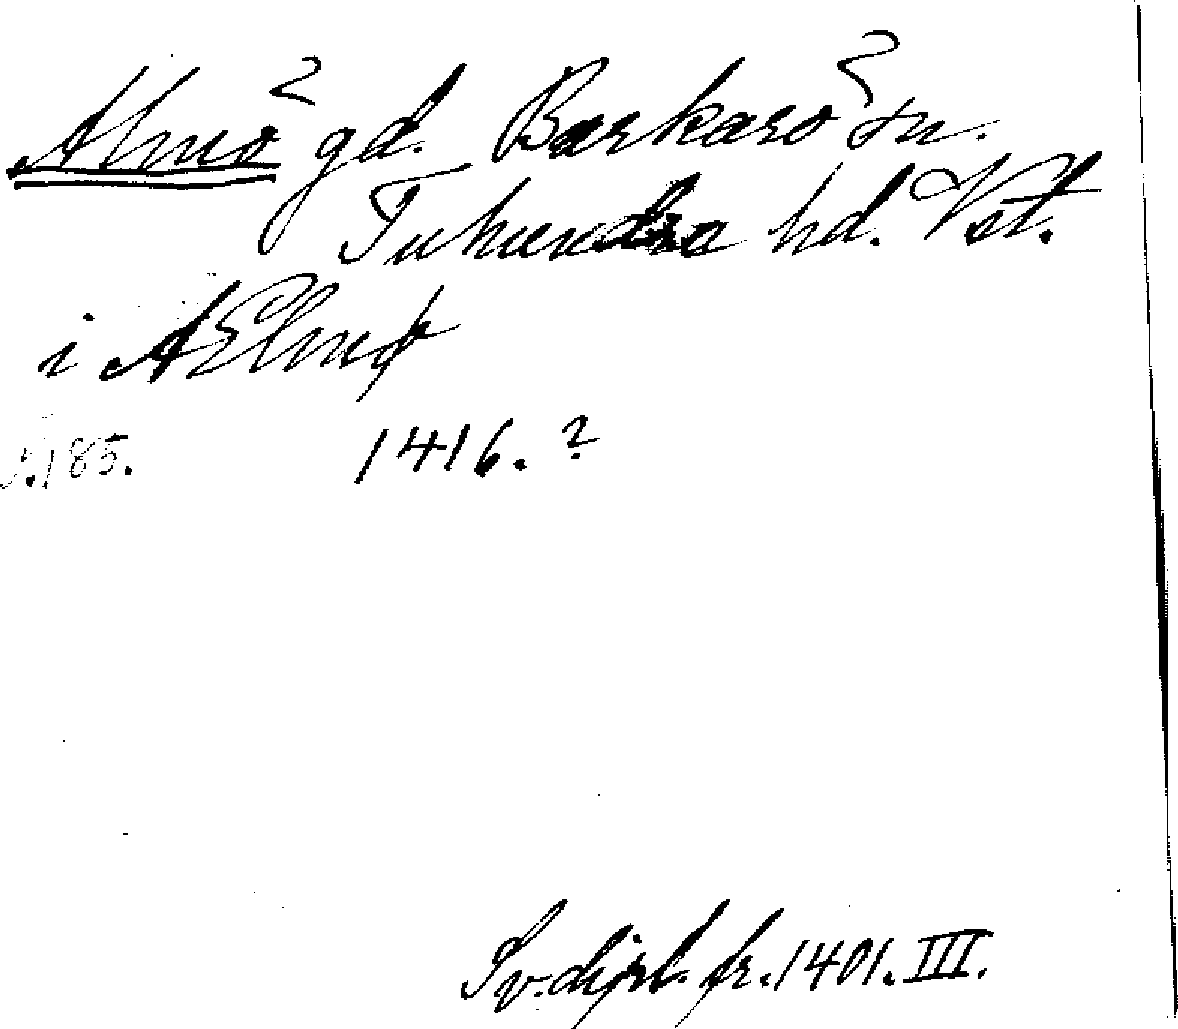 Almö gd. Barkarö sn.
Tuhundra hd. Vst.
i AElmø
s. 185. 1416. ?
Sv. dipl. fr. 1401. III.